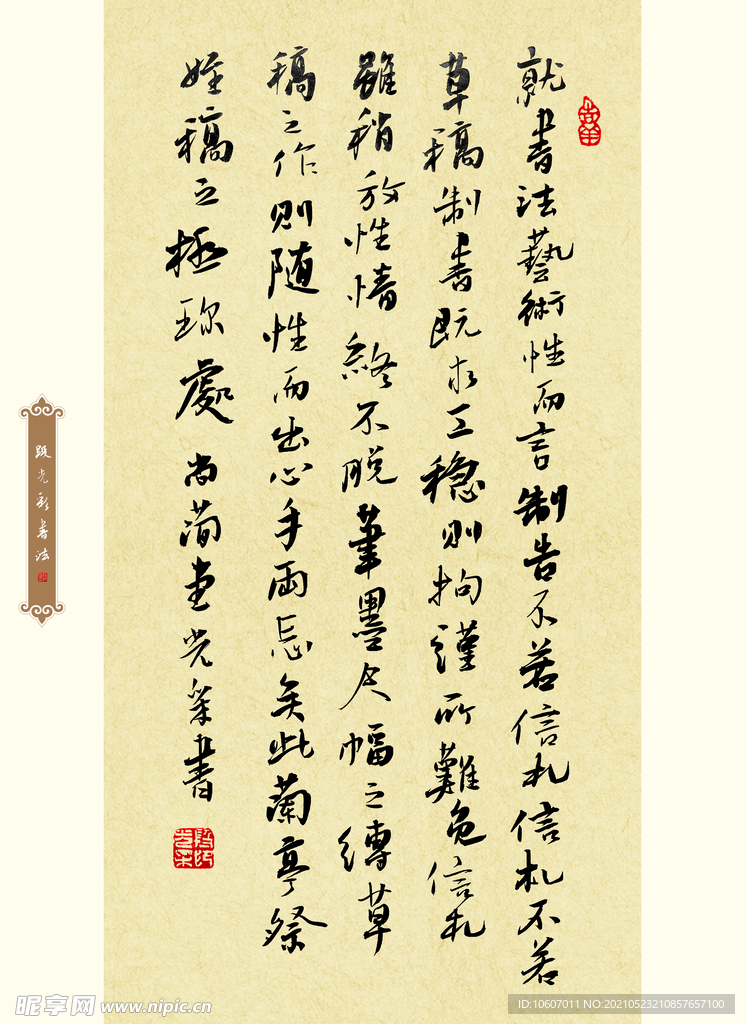 就書法藝術性而言制告不若信札信札不若
草稿制書既求工穩則拘謹所難免信札
雖稍放性情終不脱筆墨尺幅之縛草
稿之作則随性而出心手兩忘矣此蘭亭祭
姪稿之極珎處尚簡堂光采書
段光彩書法
昵享网 www.nipic.cn
ID:10607011 NO:20210523210857657100